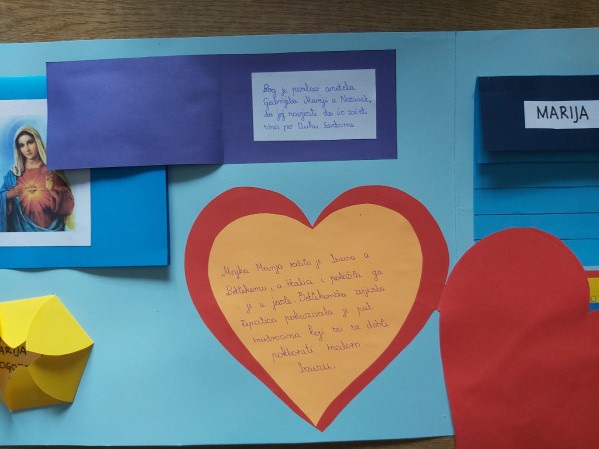 Bog je poslao anđela
Gabrijela Mariji u Nazaret,
da joj navijesti da će začeti
sina po Duhu Svetomu.
MARIJA
Majka Marija rodila je Isusa u
Betlehemu, u štalici i položila ga
je u jasle. Betlehemska zvijezda
repatica pokazivala je put
mudracima koji su se došli
pokloniti malom
Isusu.
ARIJA